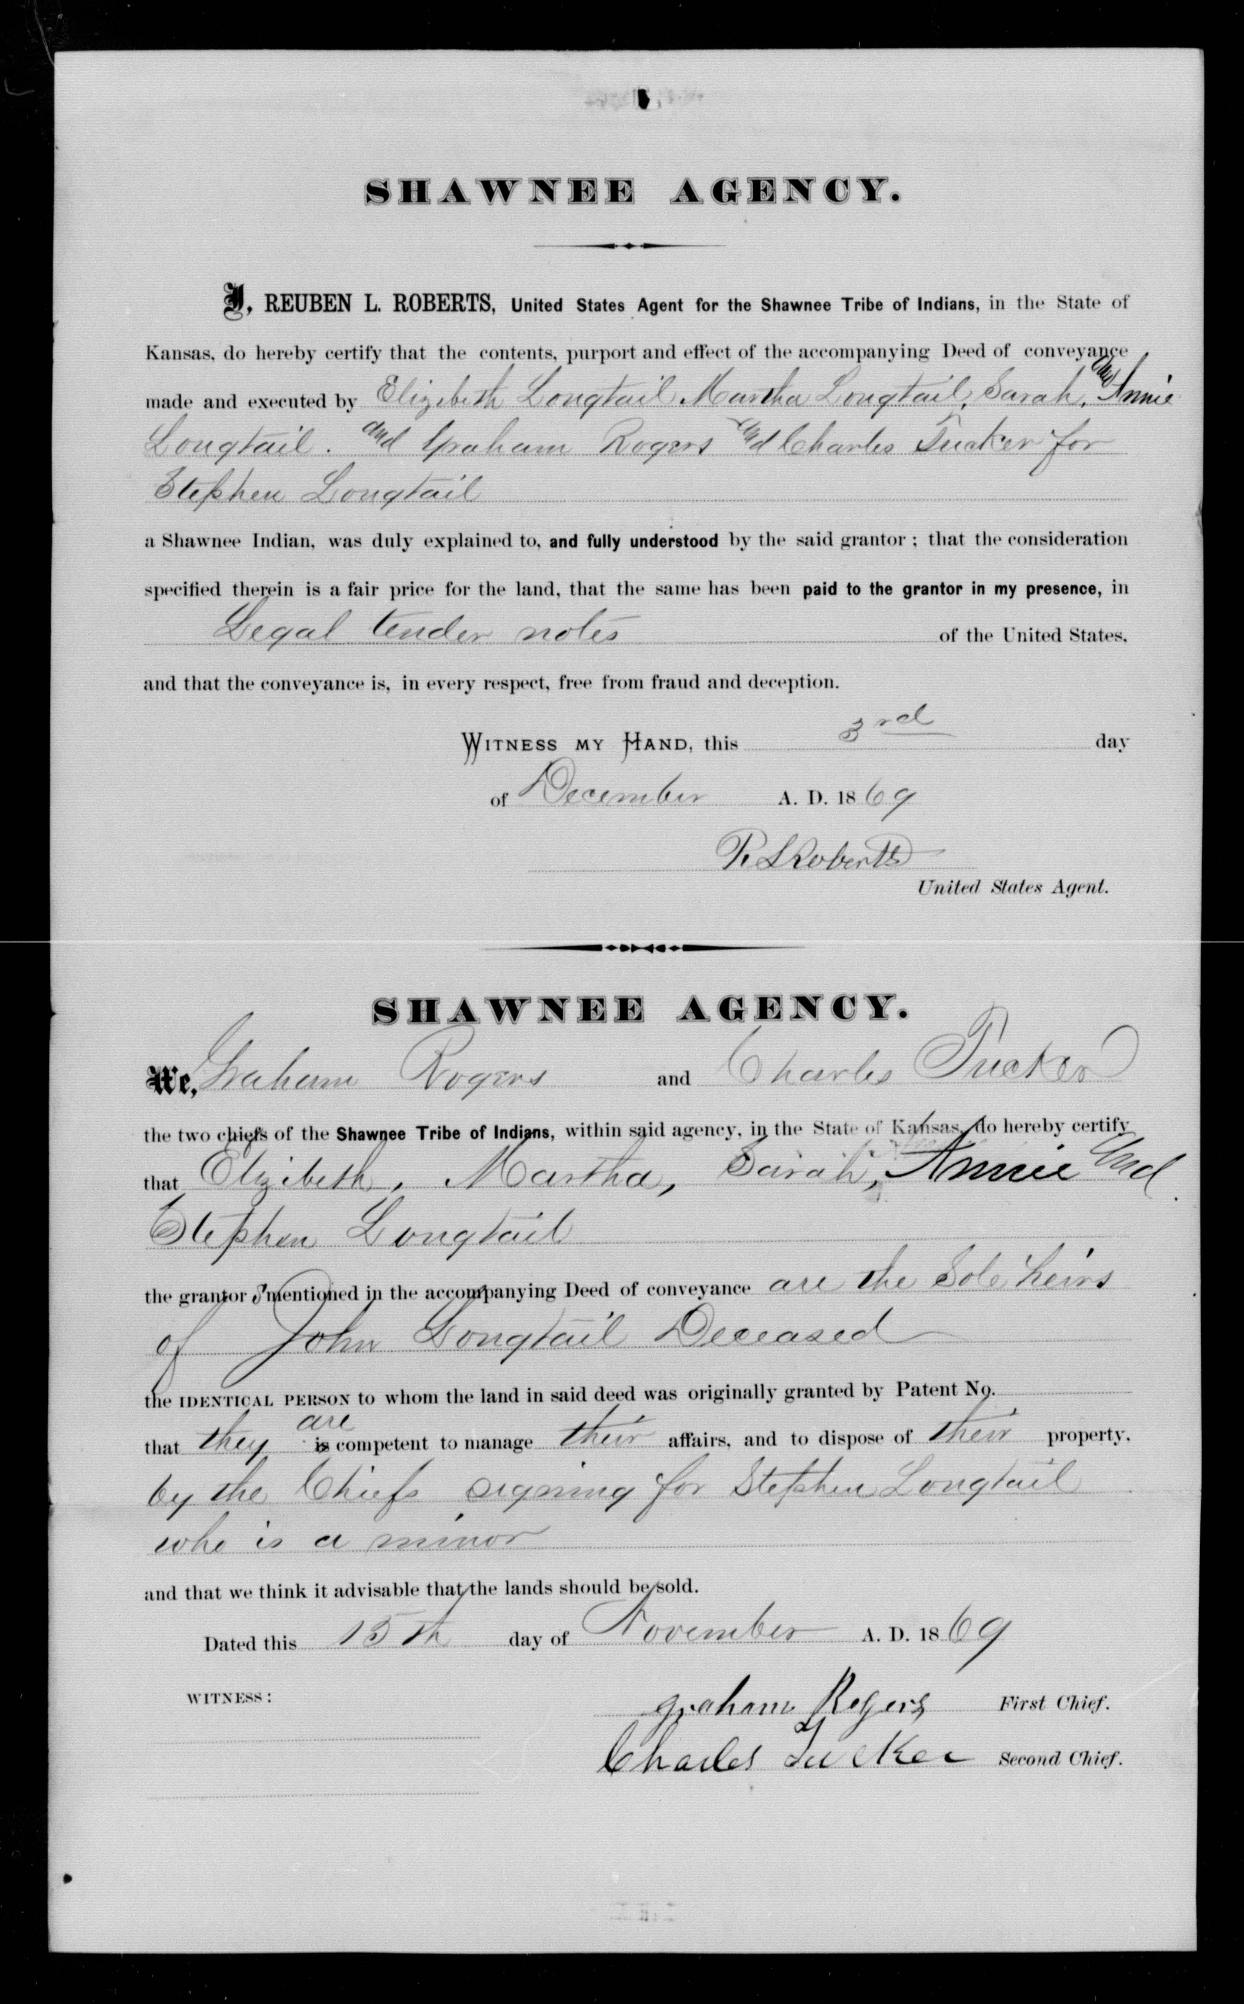 SHAWNEE AGENCY.
I, REUBEN L. ROBERTS, United States Agent for the Shawnee Tribe of Indians, in the State of
Kansas, do hereby certify that the contents, purport and effect of the accompanying Deed of conveyance
made and executed by Elizibeth Longtail Martha Longtail, Sarah, and Annie
Longtail. and Graham Rogers and Charles Tucker for
Stephen Longtail
a Shawnee Indian, was duly explained to, and fully understood by the said grantor; that the consideration
specified therein is a fair price for the land, that the same has been paid to the grantor in my presence, in
Legal tender notes of the United States,
and that the conveyance is, in every respect, free from fraud and deception.
WITNESS MY HAND, this 3rd day
of December A. D. 1869
R. L Roberts
United States Agent.
SHAWNEE AGENCY.
We, Graham Rogers and Charles Tucker
the two chiefs of the Shawnee Tribe of Indians, within said agency, in the State of Kansas, do hereby certify
that Elizibeth, Martha, Sarah, Annie and
Stephen Longtail
the grantor s mentioned in the accompanying Deed of conveyance are the Sole heirs
of John Longtail Deceased
the IDENTICAL PERSON to whom the land in said deed was originally granted by Patent No.
that they are is competent to manage their affairs, and to dispose of their property,
by the Chiefs signing for Stephen Longtail
who is a minor
and that we think it advisable that the lands should be sold.
Dated this 15th day of November A. D. 1869
WITNESS:
graham Rogers First Chief.
Charles Tucker Second Chief.